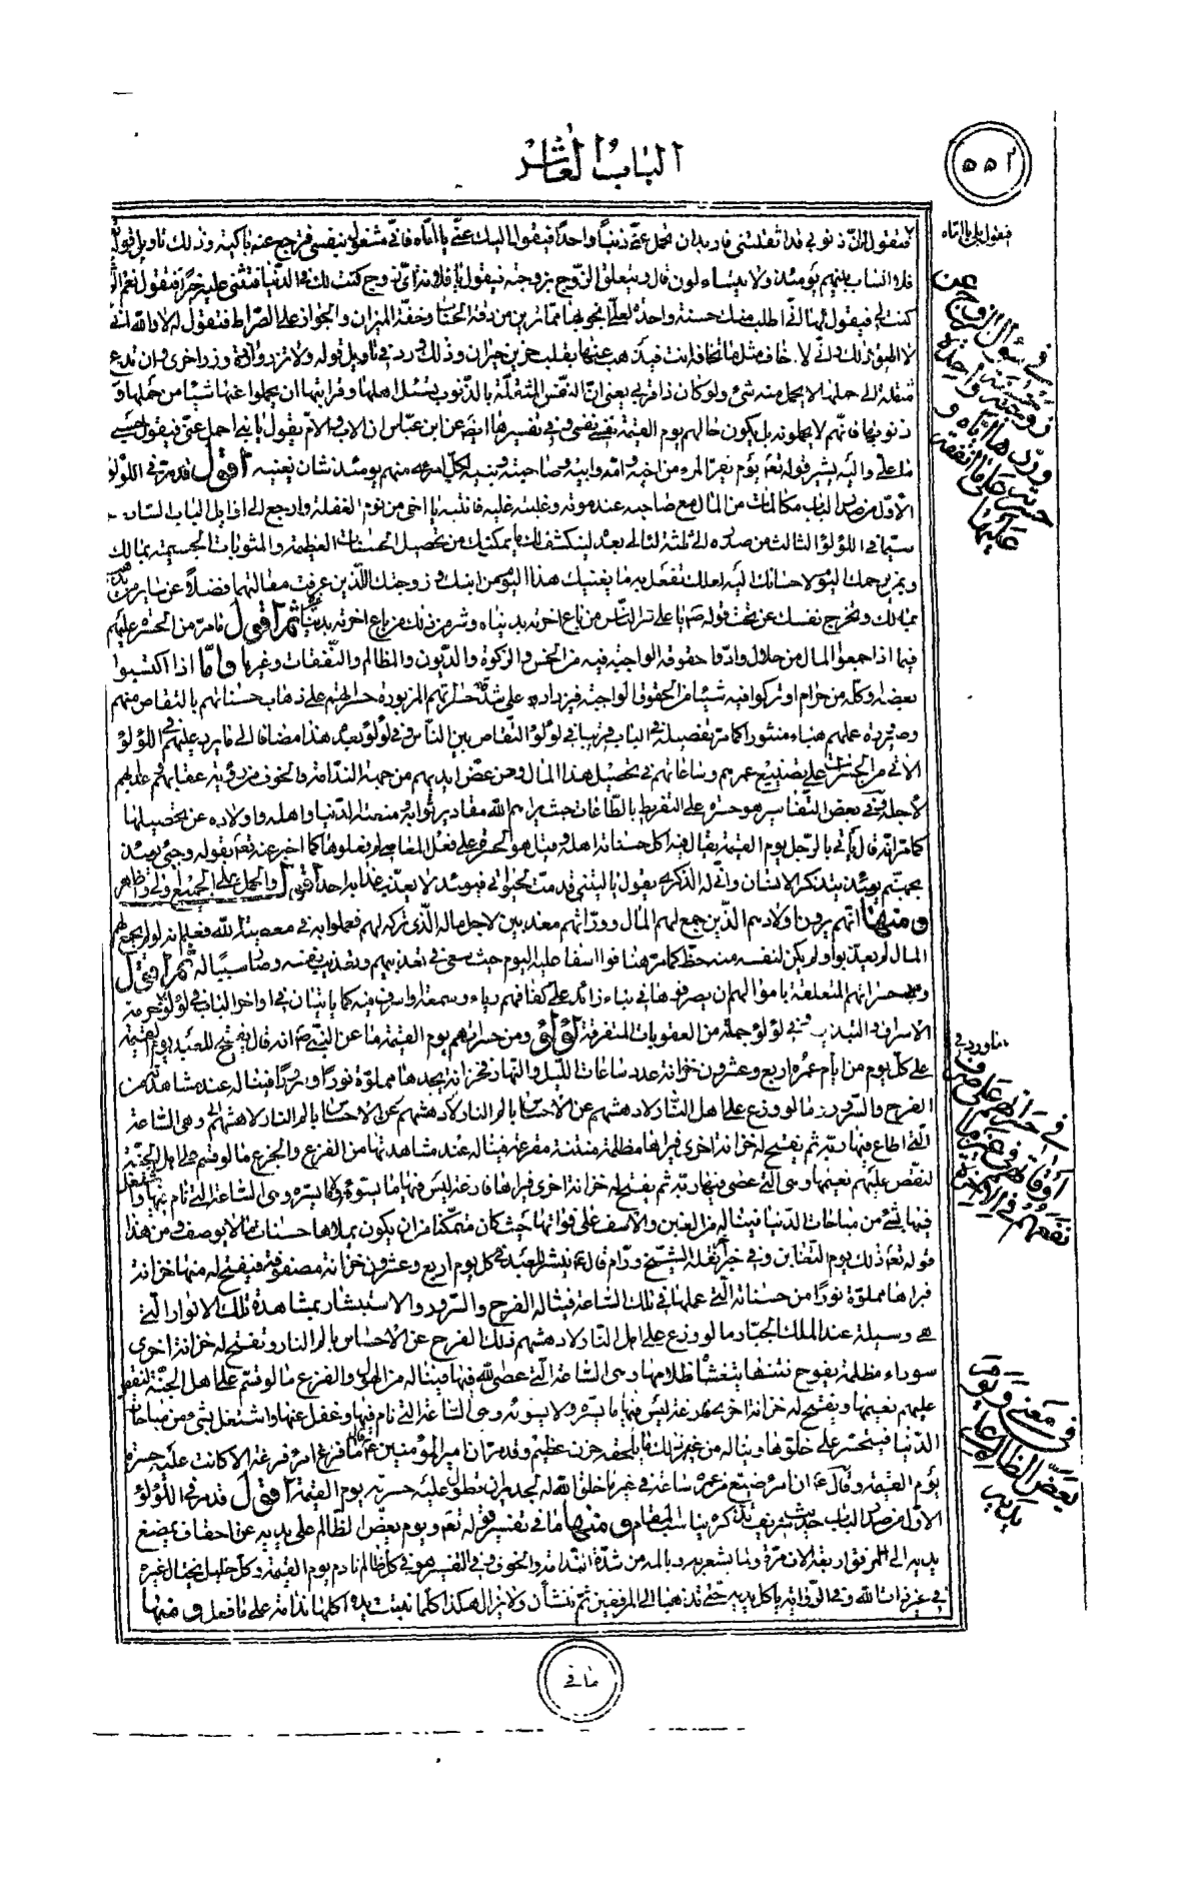 الباب العاشر
٥٥٢
فيقول بلى يا اماه
فيقول ان ذنوبي قد اثقلتني فاريد ان تحمل عني ذنباً واحداً فيقول اليك عني يا اماه فاني مشغول بنفسي فترجع عنه باكية وذلك تاويل قوله
فلا انساب بينهم يومئذ ولا يتساءلون قال ويتعلق الزوج بزوجته فيقول يا فلانة اي زوج كنت لك في الدنيا فتثني عليه خيراً فتقول نعم الزوج
كنت لي فيقول لها اني اطلب منك حسنة واحدة لعلي انجو بها مما ترين من دقة الحساب وخفة الميزان والجواز على الصراط فتقول له لا والله اني
لا اطيق ذلك واني لاخاف مثل ما تخاف انت فيذهب عنها بقلب حزين حيران وذلك ورد في تاويل قوله ولا تزر وازرة وزر اخرى وان تدع
مثقلة الى حملها لا يحمل منه شئ ولو كان ذا قربى يعني ان النفس المثقلة بالذنوب يسئل اهلها وقرابتها ان يحملوا عنها شيئا من حملها و
ذنوبها فانهم لا يحملونه بل يكون حالهم يوم القيمة نفسي نفسي وفي تفسيرها ايضا عن ابن عباس ان الاب والام يقول يا بني احمل عني فيقول حسبي
ما علي واليه يشير قوله تعالى يوم يفر المرء من اخيه وامه وابيه وصاحبته وبنيه لكل امرء منهم يومئذ شان يغنيه اقول قد مر في اللؤلؤ
الاول من صدر الباب مكالمات من المال مع صاحبه عند موته وغلبته عليه فانتبه يا اخي من نوم الغفلة وارجع الى اوايل الباب السادس
سيما في اللؤلؤ الثالث من صدره الى ثلثة لئالى بعد لينكشف لك ما يمكنك من تحصيل الحسنات العظيمة والمثوبات الجسيمة بمالك
وبمن يرحمك اليوم لاحسانك اليه لعلك تفعل به ما يغنيك هذا اليوم من ابنك وزوجتك اللذين عرفت مقالتهما فضلاً عن ساير من
بمالك وتخرج نفسك عن تحت قوله ص يا علي شر الناس من باع اخرته بدنياه وشر من ذلك من باع اخرته بدنيا غيره ثم اقول ما مر من الحسرة عليهم
فيما اذا جمعوا المال من حلال وادوا حقوقه الواجبة فيه من الخمس والزكوة والديون والمظالم والنفقات وغيرها واما اذا اكتسبوا
بعضه او كله من حرام او تركوا فيه شيئا من الحقوق الواجبة فيزداد على شدة حسراتهم المزبورة حسراتهم على ذهاب حسناتهم بالتقاص منهم
وصيرورة عملهم هباء منثورا كما مر تفصيله في الباب قريبا في لؤلؤ التقاص بين الناس وفي لؤلؤ بعده هذا مضافا الى ما يرد عليهم في اللؤلؤ
الاتي من الحسرات على تضييع عمرهم وساعاتهم في تحصيل هذا المال ومن عض ايديهم من جهة الندامة والخوف من رؤية عقابهم
لاجله في بعض التفاسير هو حسرة على التفريط بالطاعات حيث يريهم الله مقادير ثوابه ومنعته الدنيا واهله واولاده عن تحصيلها
كما مر انه قال يؤتى بالرجل يوم القيمة يقال فيه اكل حسناته اهله وقيل هو الحسرة على فعل المعاصي لم فعلوها كما اخبر عنه تعالى بقوله وجئ يومئذ
بجهنم يومئذ يتذكر الانسان واني له الذكرى يقول يا ليتني قدمت لحيوتي فيومئذ لا يعذب عذابه احد اقول والحمل على الجميع اولى وظاهر
ومنها انهم يرون اولادهم الذين جمع لهم المال ووراثهم معذبين لاجل ماله الذي تركه لهم فعملوا به في معصية الله فعليه انه لو لم يجمع لهم
المال لم يعذبوا ولم يكن لنفسه منه حظ كما مر هنا فوا اسفا عليه اليوم حيث سعى في تعذيبهم وتعذيب نفسه وصار سببا له ثم اقول
ومن حسراتهم المتعلقة باموالهم ان يصرفوها في بناء زائد على كفافهم رياء وسمعة او اسرافا فيه كما ياتيان في اواخر الباب في لؤلؤ حرمة
الاسراف والتبذير وفي لؤلؤ جملة من العقوبات المتفرقة لؤلؤ ومن حسراتهم يوم القيمة ما عن النبي ص انه قال يفتح للعبد يوم القيمة
على كل يوم من ايام عمره اربع وعشرون خزانة عدد ساعات الليل والنهار فخزانة يجدها مملوة نورا وسرورا فيناله عند مشاهدتها من
الفرح والسرور ما لو وزع على اهل النار لادهشهم عن الاحساس بالم النار وهي الساعة
التي اطاع فيها ربه ثم يفتح له خزانة اخرى فيراها مظلمة منتنة مفزعة فيناله عند مشاهدتها من الفزع والجزع ما لو قسم على اهل الجنة
لنقص عليهم نعيمها وهي التي عصى فيها ربه ثم يفتح له خزانة اخرى فيراها فارغة ليس فيها ما يسوؤه ولا يسره وهي الساعة التي نام فيها واشتغل
فيها بشئ من مباحات الدنيا فيناله من الغبن والاسف على فواتها حيث كان متمكنا من ان يكون يملاها حسنات ما لا يوصف ومن هذا
قوله تعالى ذلك يوم التغابن وفي خبر نقله الشيخ ورام قال ينشر للعبد في كل يوم اربع وعشرون خزانة مصفوفة فيفتح له منها خزانة
فيراها مملوة نورا من حسناته التي عملها في تلك الساعة فيناله الفرح والسرور والاستبشار بمشاهدة تلك الانوار التي
هي وسيلة عند الملك الجبار ما لو وزع على اهل النار لادهشهم ذلك الفرح عن الاحساس بالم النار وتفتح له خزانة اخرى
سوداء مظلمة يفوح نتنها يتغشا ظلامها وهي الساعة التي عصى الله فيها فيناله من الهول والفزع ما لو قسم على اهل الجنة لنقص
عليهم نعيمها ويفتح له خزانة اخرى فارغة ليس فيها ما يسره ولا يسوئه وهي الساعة التي نام فيها وغفل عنها واشتغل بشئ من مباحات
الدنيا فيتحسر على خلوها ويناله من غبن ذلك ما يلحقه حزن عظيم وقد مر ان امير المؤمنين ع قال ما فرغ امرء فرغة الا كانت عليه حسرة
يوم القيمة وقال ع ان امرء ضيع من عمره ساعة في غير ما خلق الله له لجدير ان تطول عليه حسرته يوم القيمة اقول قد مر في اللؤلؤ
الاول من صدر الباب حديث شريف تذكره يناسب المقام ومنها ما في تفسير قوله تعالى ويوم يعض الظالم على يديه عن احقاف يعض
يديه الى المرفق اربعة الاف مرة وما يشعر به وبالمه من شدة الندامة والخوف وفي التفسير هو في كل ظالم نادم يوم القيمة وكل خليل يخال غيره
في غير ذات الله وفي الرواية ياكل يديه حتى تذهبا الى المرفقين ثم تنشأن ولا يزال هكذا كلما نبتت يده اكلها ندامة على ما فعل ومنها
في سؤال الزوج عن زوجته حسنة واحدة وردها اياه و حسرته على ما انفقه عليها
ما ورد في
في حسراتهم على صرف اوقاتهم في غير ما ينفعهم في الاخرة
في معنى ويوم يعض الظالم على يديه
ما في